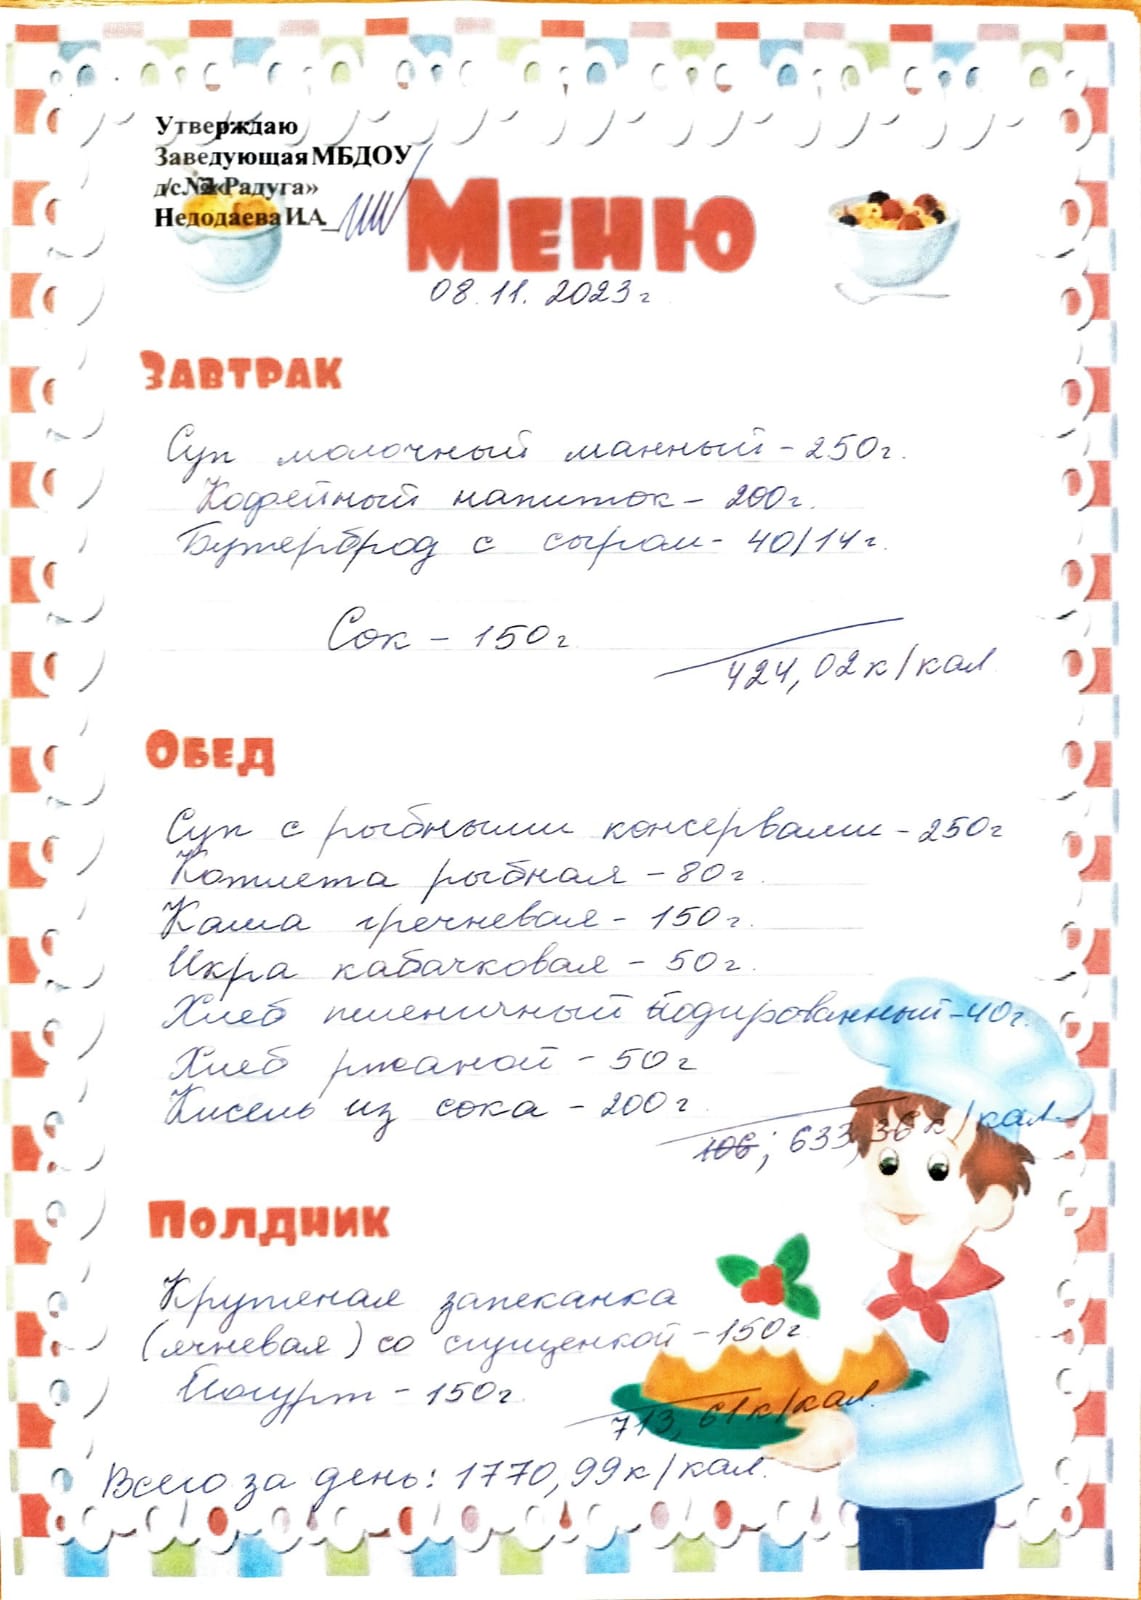 Утверждаю
Заведующая МБДОУ
д/с №2 «Радуга»
Недодаева И.А.
Меню
08.11.2023г
Завтрак
Суп молочный манный - 250г.
Кофейный напиток - 200г.
Бутерброд с сыром - 40/14г.
Сок - 150г
424,02к/кал
Обед
Суп с рыбными консервами - 250г
Котлета рыбная - 80г.
Каша гречневая - 150г.
Икра кабачковая - 50г.
Хлеб пшеничный йодированный - 40г.
Хлеб ржаной - 50г
Кисель из сока - 200г.
106; 633,36к/кал
Полдник
Крупяная запеканка
(ячневая) со сгущенкой - 150г
Йогурт - 150г.
713,61к/кал.
Всего за день: 1770,99к/кал.